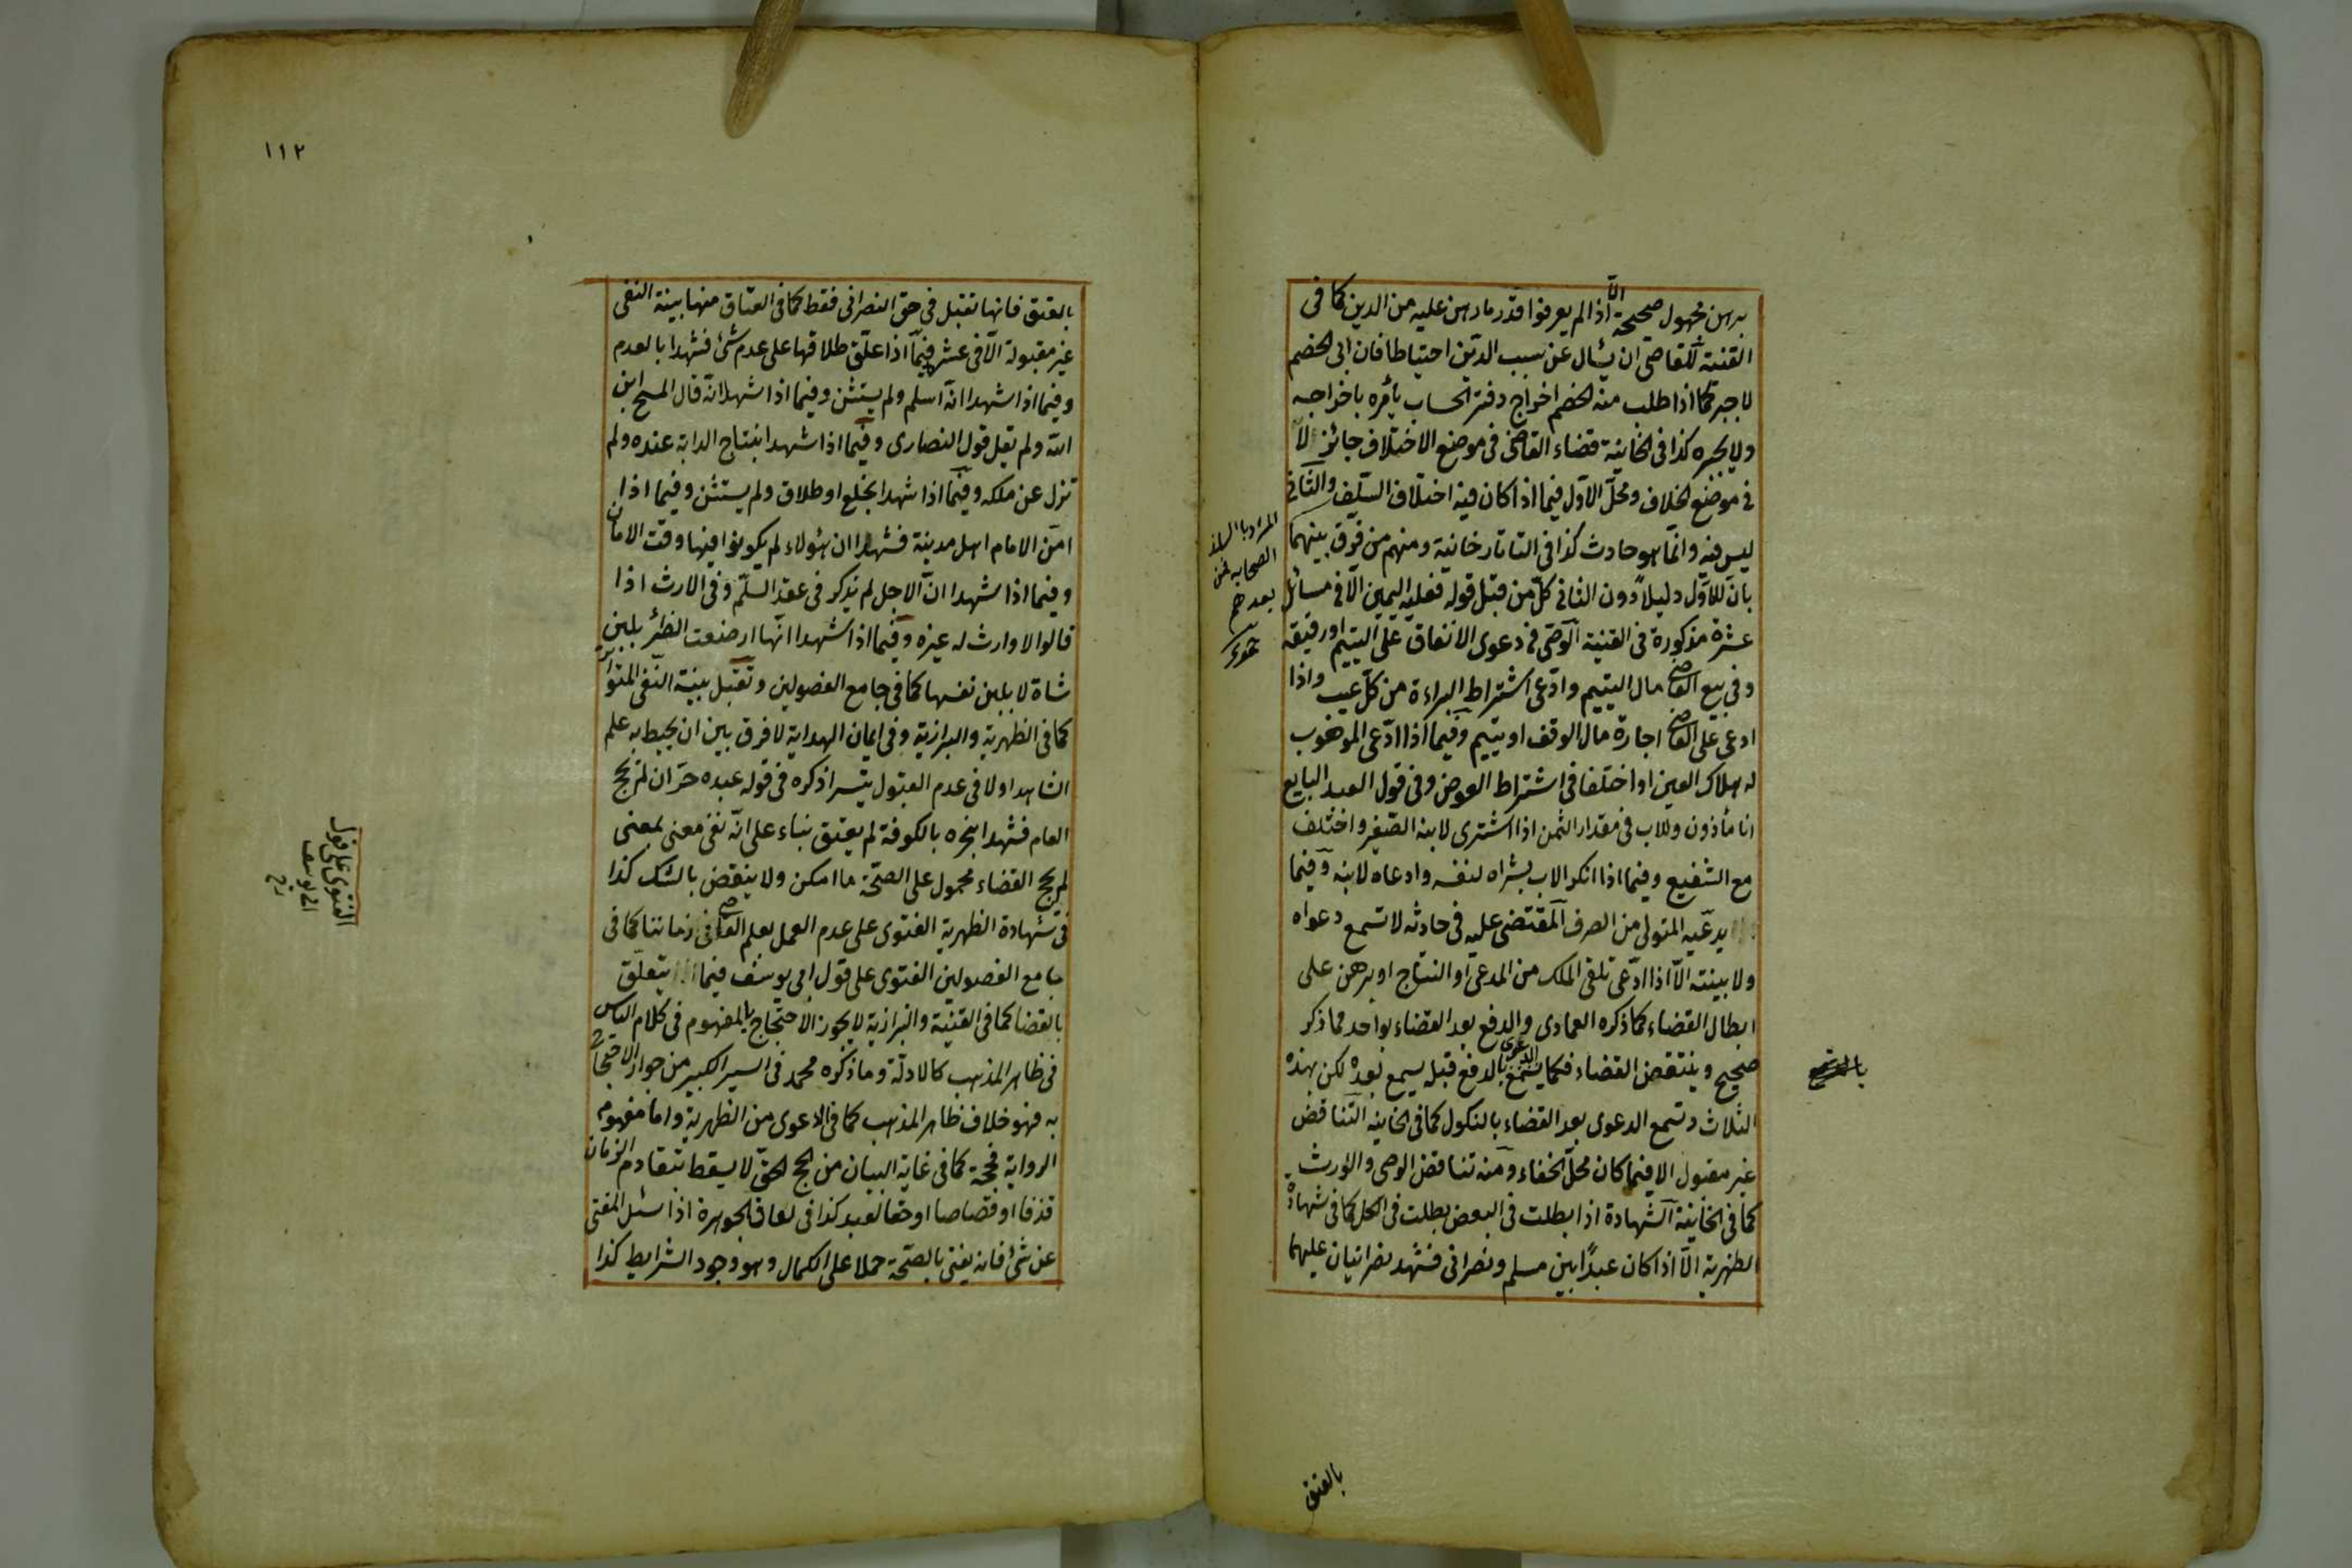 برهن مجهول صحيحة الا اذا لم يعرفوا قدر ما رهن عليه من الدين كما فى
القنية للقاضى ان يسأل عن سبب الدين احتياطا فان ابى الخصم
لا جبر كما اذا طلب منه الخصم اخراج دفتر الحساب يأمره باخراجه
ولا يجبره كذا فى الخانية قضاء القاضى فى موضع الاختلاف جائز لا
فى موضع الخلاف ومحل الاول فيما اذا كان فيه اختلاف السلف والثانى
ليس فيه وانما هو حادث كذا فى التاتارخانية ومنهم من فرق بينهما
بان للاول دليلا دون الثانى كل من قبل قوله فعليه اليمين الا فى مسائل
عشرة مذكورة فى القنية الوصى فى دعوى الانفاق على اليتيم او رقيقه
وفى بيع القاضى مال اليتيم وادعى اشتراط البراءة من كل عيب واذا
ادعى على القاضى اجارة مال الوقف او يتيم وفيما اذا ادعى الموهوب
له هلاك العين او اختلفا فى اشتراط العوض وفى قول العبد البايع
انا مأذون وللاب فى مقدار الثمن اذا اشترى لابنه الصغير واختلف
مع الشفيع وفيما اذا انكر الاب بشراه لنفسه وادعاه لابنه وفيما
يدعيه المتولى من الصرف المقتضى عليه فى حادثه لا تسمع دعواه
ولا بينته الا اذا ادعى تلقى الملك من المدعى او النتاج او برهن على
ابطال القضاء كما ذكره العمادى والدفع بعد القضاء بواحد مما ذكر
صحيح وينتقض القضاء فكما يسمع الدعوى بالدفع قبله يسمع بعده لكن بهذه
الثلاث وتسمع الدعوى بعد القضاء بالنكول كما فى الخانيه التناقض
غير مقبول الا فيما كان محل الخفاء ومنه تناقض الوصى والوارث
كما فى الخانية الشهادة اذا بطلت فى البعض بطلت فى الكل كما فى شهادة
الظهرية الا اذا كان عبدا بين مسلم ونصرانى فشهد نصرانيان عليهما
المراد بالسلف
الصحابه فمن
بعدهم
بالعتق
١١٢
بالعتق فانها تقبل فى حق النصرانى فقط كما فى العتاق منها بينة النفى
غير مقبولة الا فى عشر فيما اذا علق طلاقها على عدم شئ فشهدا بالعدم
وفيما اذا شهدا انه اسلم ولم يستثن وفيما اذا شهدا انه قال المسيح ابن
الله ولم يقل قول النصارى وفيما اذا شهدا بنتاج الدابة عنده ولم
تزل عن ملكه وفيما اذا شهدا بخلع او طلاق ولم يستثن وفيما اذا
امن الامام اهل مدينة فشهدا ان هؤلاء لم يكونوا فيها وقت الامان
وفيما اذا شهدا ان الاجل لم يذكر فى عقد السلم وفى الارث اذا
قالوا لا وارث له غيره وفيما اذا شهدا انها ارضعت الظئر بلبن
شاة لا بلبن نفسها كما فى جامع الفصولين وتقبل بينة النفى المتواتر
كما فى الظهرية والبزازية وفى ايمان الهداية لا فرق بين ان يحيط به علم
الشاهد او لا فى عدم القبول تيسرا ذكره فى قوله عبده حر ان لم يحج
العام فشهدا بنحره بالكوفة لم يعتق بناء على انه نفى معنى بمعنى
لم يحج القضاء محمول على الصحة ما امكن ولا ينقض بالشك كذا
فى شهادة الظهرية الفتوى على عدم العمل بعلم القاضى فى زماننا كما فى
جامع الفصولين الفتوى على قول ابى يوسف فيما يتعلق
بالقضا كما فى القنية والبزازية لا يجوز الاحتجاج بالمفهوم فى كلام الناس
فى ظاهر المذهب كالادلة وما ذكره محمد فى السير الكبير من جواز الاحتجاج
به فهو خلاف ظاهر المذهب كما فى الدعوى من الظهرية واما مفهوم
الرواية فحجة كما فى غاية البيان من الحج الحق لا يسقط بتقادم الزمان
قذفا او قصاصا او حقا لعبد كذا فى لعان الجوهرة اذا سئل المفتى
عن شئ فانه يفتى بالصحة حملا على الكمال وهو وجود الشرايط كذا
الفتوى على قول
ابى يوسف